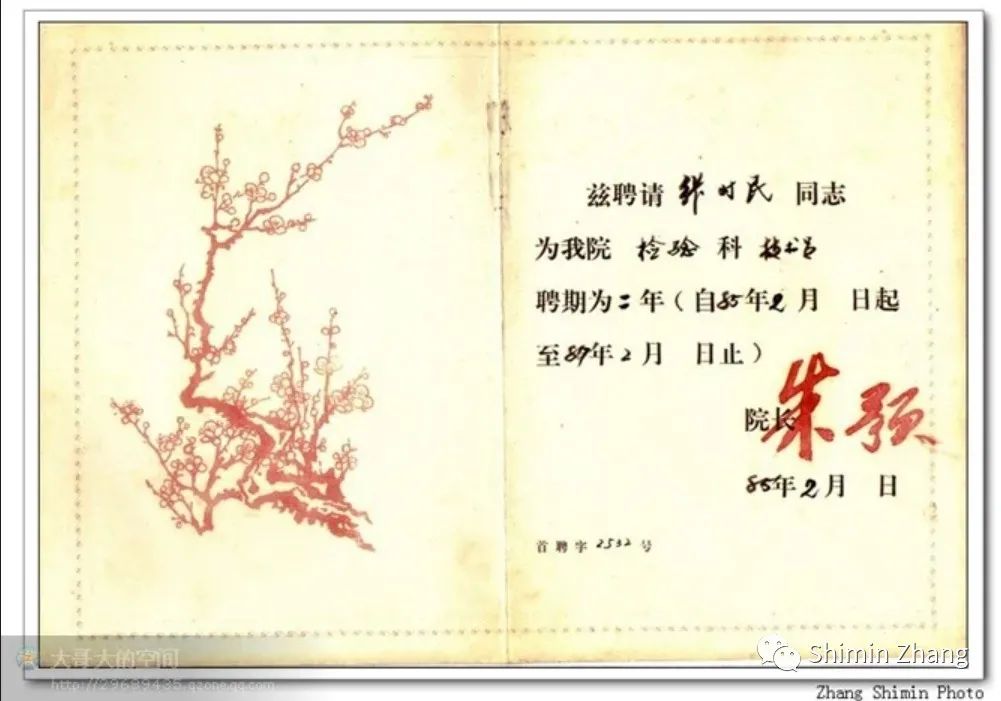 兹聘请 张时民 同志
为我院 检验 科 技术员
聘期为二年（自85年2月 日起
至87年2月 日止）
院长
朱预
85年2月 日
首聘字 2532 号
大哥大的空间
http://29689485.qzone.qq.com
Shimin Zhang
Zhang Shimin Photo